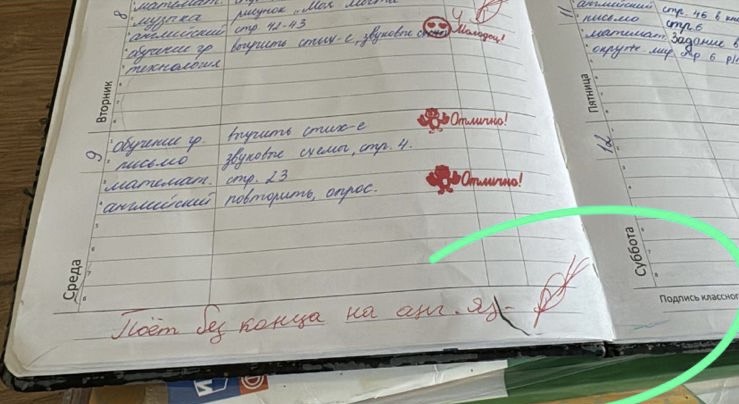 8
математ.
музыка рисунок „Моя мечта
английский стр. 42-43
обучение гр. выучить стих-е, звуковые схемы
Молодец!
технология
Вторник
9
обучение гр. выучить стих-е
Отлично!
письмо звуковые схемы, стр. 4.
математ. стр. 23
Отлично!
английский повторить, опрос.
Среда
Поёт без конца на анг. яз-
11
английский стр. 46 в
письмо стр. 6
математ. Задание в
окруж. мир стр 6
Пятница
12
Суббота
Подпись классног